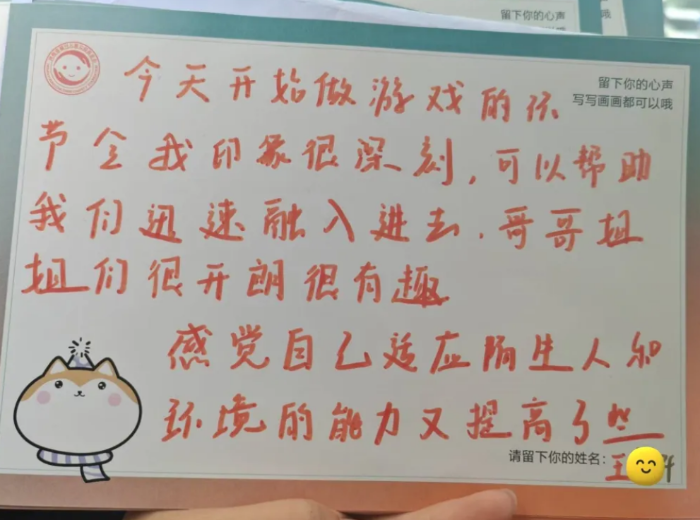 留下你的心声
留下你的心声
写写画画都可以哦
今天开始做游戏的环
节令我印象很深刻，可以帮助
我们迅速融入进去．哥哥姐
姐们很开朗很有趣
感觉自己适应陌生人和
环境的能力又提高了些
请留下你的姓名：
王